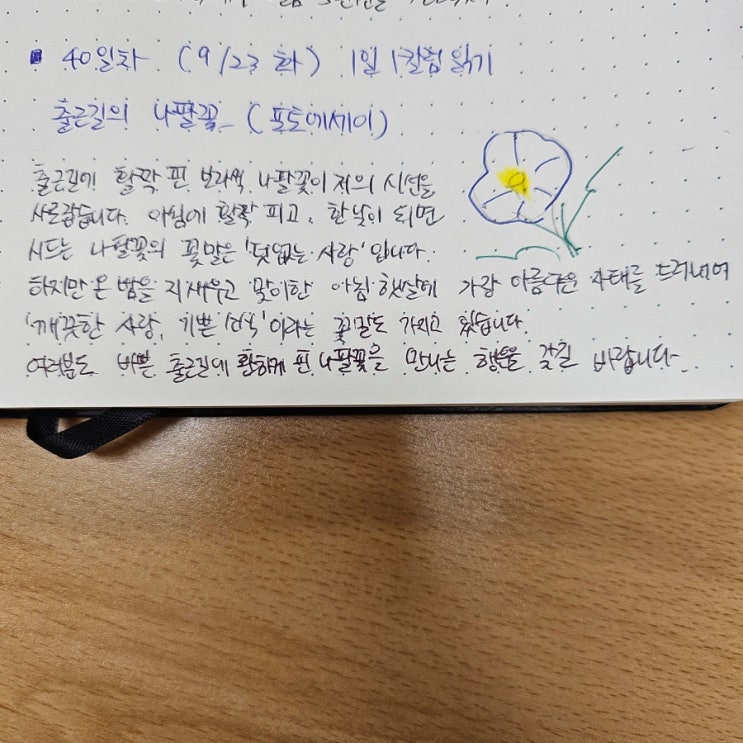 40일차 (9/23 화) 1일 1칼럼 읽기
출근길의 나팔꽃 (포토에세이)
출근길에 활짝 핀 보라색 나팔꽃이 저의 시선을
사로잡습니다. 아침에 활짝 피고, 한낮이 되면
시드는 나팔꽃의 꽃말은 '덧없는 사랑' 입니다.
하지만 온 밤을 지새우고 맞이한 아침 햇살에 가장 아름다운 자태를 드러내어
'깨끗한 사랑, 기쁜 소식' 이라는 꽃말도 가지고 있습니다.
여러분도 바쁜 출근길에 환하게 핀 나팔꽃을 만나는 행운을 갖길 바랍니다.